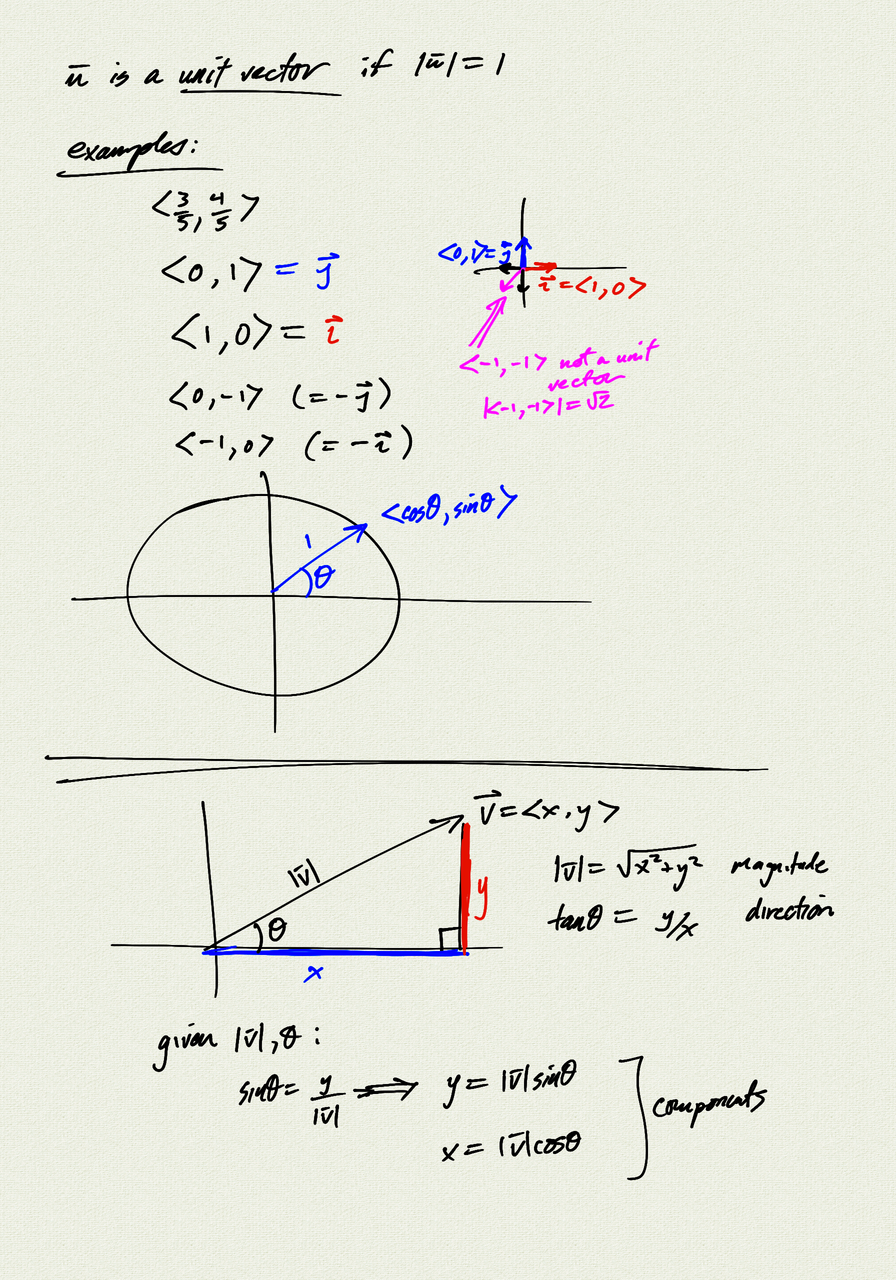 ū is a unit vector if |ū| = 1
examples:
<3/5, 4/5>
<0, 1> = j⃗
<1, 0> = i⃗
<0, -1> (= -j⃗)
<-1, 0> (= -i⃗)
<0, 1> = j⃗
i⃗ = <1, 0>
<-1, -1> not a unit
vector
|<-1, -1>| = √2
<cosθ, sinθ>
1
θ
v⃗ = <x, y>
|v̄|
θ
y
x
|v̄| = √x²+y² magnitude
tanθ = y/x direction
given |v̄|, θ :
sinθ = y/|v̄| ⟹ y = |v̄| sinθ
x = |v̄| cosθ
components